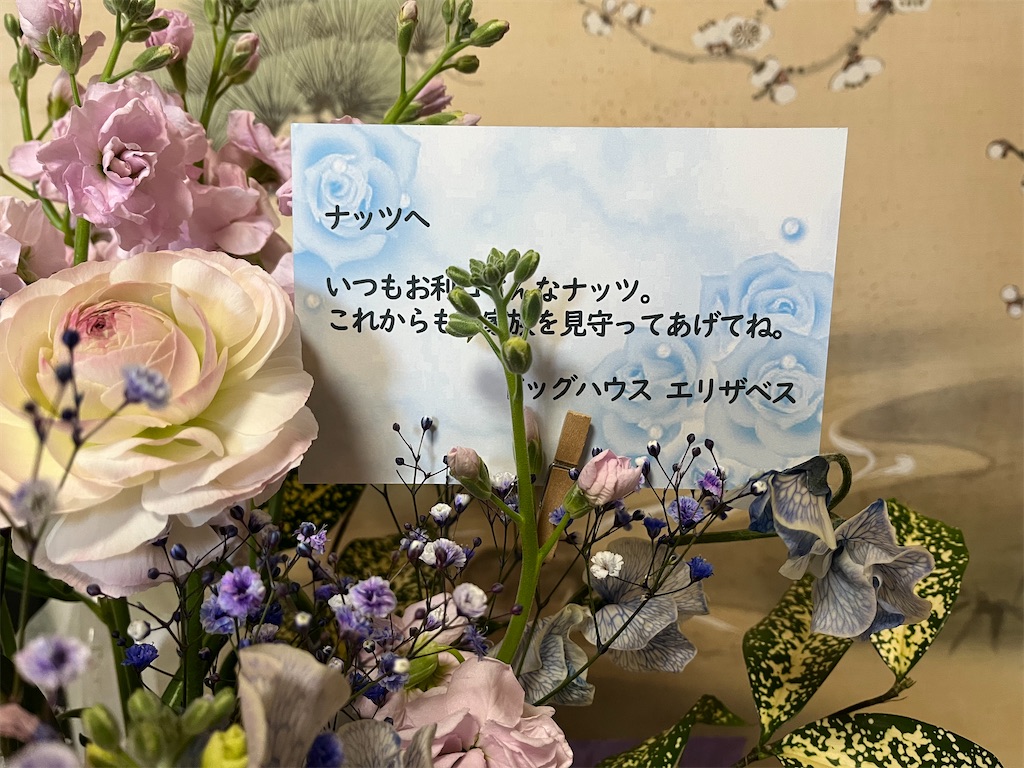 ナッツへ
いつもお利口さんなナッツ。
これからもご家族を見守ってあげてね。
ドッグハウス エリザベス